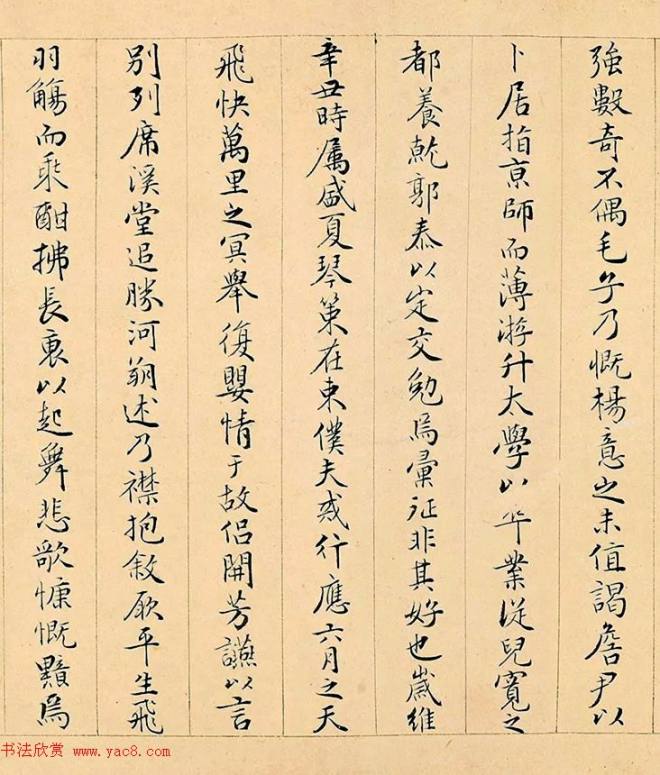 強數奇不偶毛子乃慨楊意之未值謁詹尹以
卜居指京師而薄游升太學以卒業從兒寬之
都養乾郭泰以定交勉焉彙征非其好也歲維
辛丑時属盛夏琴策在東僕夫戒行應六月之天
飛快萬里之冥舉復嬰情于故侶開芳讌以言
別列席溪堂追勝河朔述乃襟抱敘厥平生飛
羽觴而乘酣拂長裒以起舞悲歌慷慨黯焉
书法欣赏 www.yac8.com